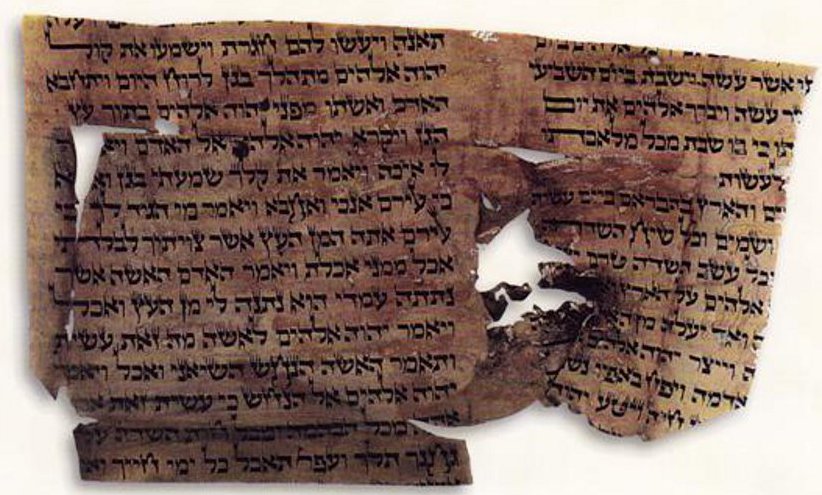 אלהים ביום
אשר עשה וישבת ביום השביעי
עשה ויברך אלהים את יום
כי בו שבת מכל
לעשות
והארץ בהבראם ביום עשות
ושמים וכל שיח השדה
וכל עשב השדה טרם
אלהים על
ואד יעלה מן
וייצר יהוה אלהים
אדמה ויפח באפיו
חיה ויטע יהוה
עלה
תאנה ויעשו להם חגרת וישמעו את קול
יהוה אלהים מתהלך בגן לרוח היום ויתחבא
האדם ואשתו מפני יהוה אלהים בתוך עץ
הגן ויקרא יהוה אלהים אל האדם
לו איכה ויאמר את קלך שמעתי בגן
כי עירם אנכי ואחבא ויאמר מי הגיד
עירם אתה המן העץ אשר צויתיך לבלתי
אכל ממנו אכלת ויאמר האדם האשה אשר
נתתה עמדי הוא נתנה לי מן העץ ואכל
ויאמר יהוה אלהים לאשה מה זאת עשית
ותאמר האשה הנחש השיאני ואכל ויאמר
יהוה אלהים אל הנחש כי עשית זאת
מכל הבהמה ומכל חית השדה על
גחנך תלך ועפר תאכל כל ימי חייך